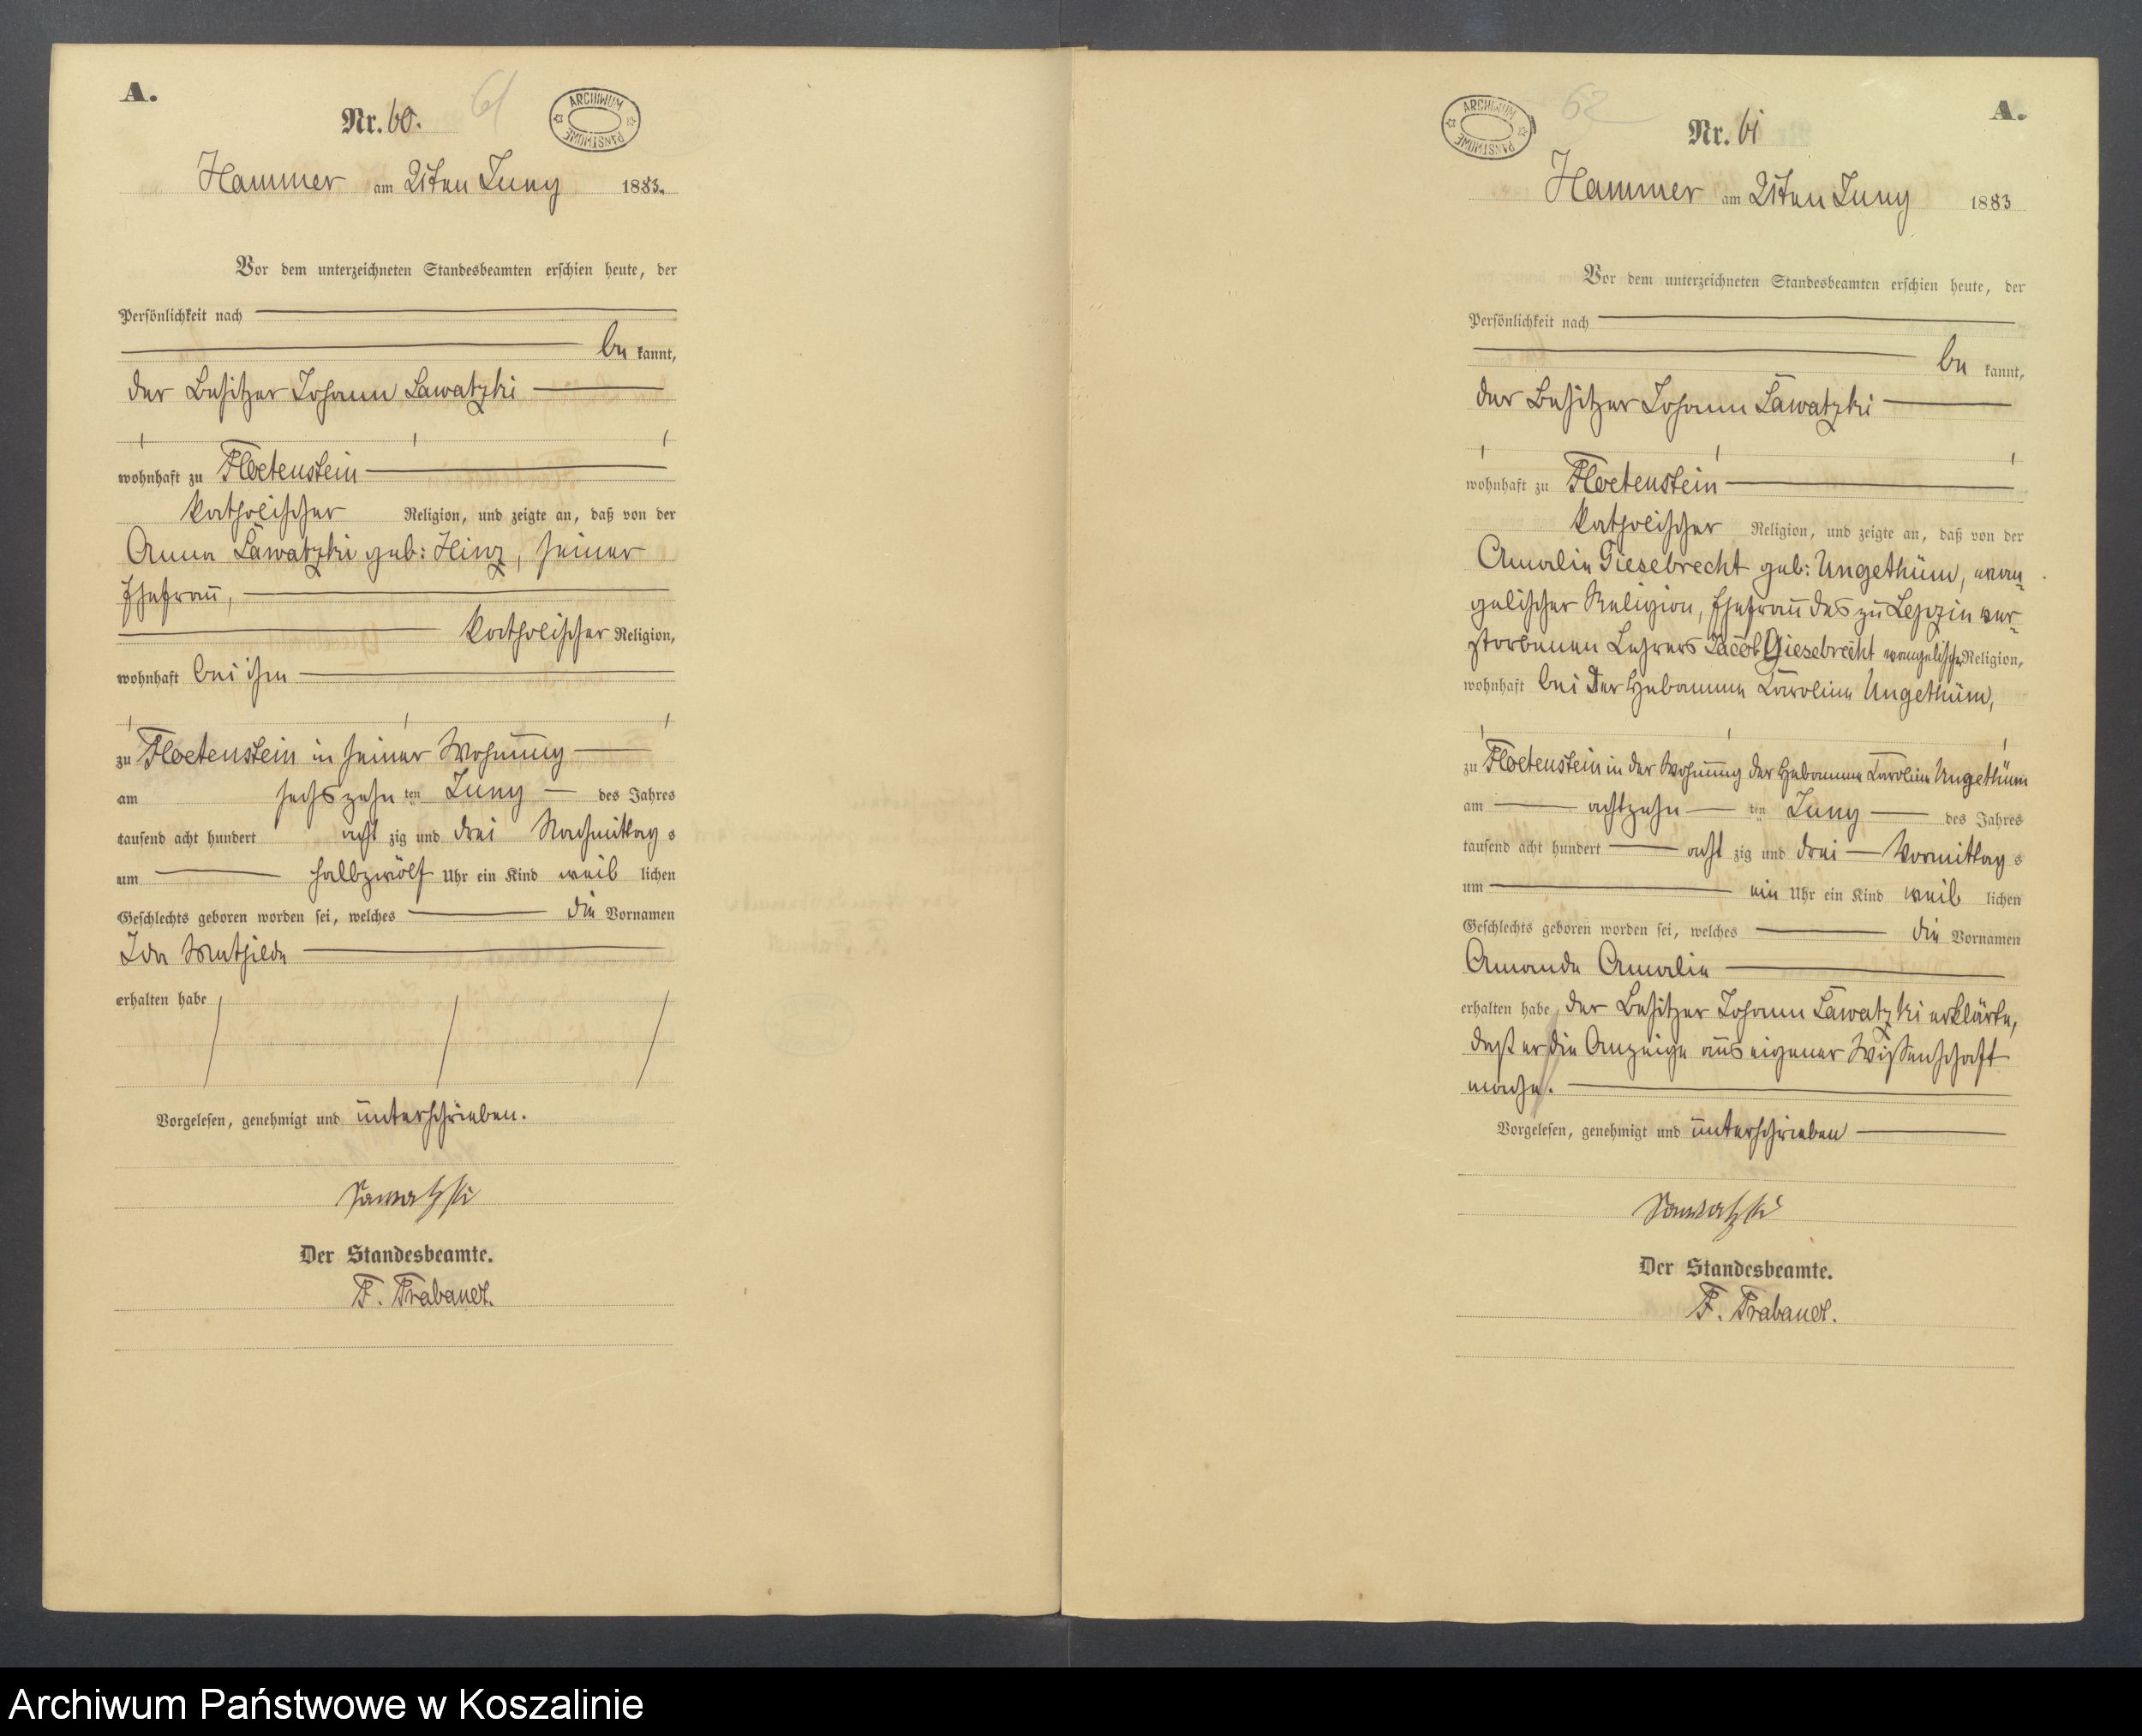 A.
Nr. 60.
61
ARCHIWUM PAŃSTWOWE
Hammer am 21ten Juny 1883.
Vor dem unterzeichneten Standesbeamten erschien heute, der
Persönlichkeit nach
be kannt,
der Besitzer Johann Lawatzki
wohnhaft zu Floetenstein
katholischer Religion, und zeigte an, daß von der
Anna Lawatzki geb: Hinz, seiner
Ehefrau,
katholischer Religion,
wohnhaft bei ihm
zu Floetenstein in seiner Wohnung
am sechszehn ten Juny des Jahres
tausend acht hundert acht zig und drei Nachmittag s
um halbzwölf Uhr ein Kind weib lichen
Geschlechts geboren worden sei, welches die Vornamen
Ida Mathilde
erhalten habe
Vorgelesen, genehmigt und unterschrieben.
Lawatzki
Der Standesbeamte.
F. Trabandt.
ARCHIWUM PAŃSTWOWE
62
A.
Nr. 61
Hammer am 21ten Juny 1883
Vor dem unterzeichneten Standesbeamten erschien heute, der
Persönlichkeit nach
be kannt,
der Besitzer Johann Lawatzki
wohnhaft zu Floetenstein
katholischer Religion, und zeigte an, daß von der
Amalie Giesebrecht geb: Ungethüm, evan-
gelischer Religion, Ehefrau des zu Lepzin ver-
storbenen Lehrers Jacob Giesebrecht evangelischer Religion,
wohnhaft bei der Hebamme Caroline Ungethüm,
zu Floetenstein in der Wohnung der Hebamme Caroline Ungethüm
am achtzehn ten Juny des Jahres
tausend acht hundert acht zig und drei Vormittag s
um ein Uhr ein Kind weib lichen
Geschlechts geboren worden sei, welches die Vornamen
Amande Amalie
erhalten habe, der Besitzer Johann Lawatzki erklärte,
daß er die Anzeige aus eigener Wissenschaft
mache.
Vorgelesen, genehmigt und unterschrieben
Lawatzki
Der Standesbeamte.
F. Trabandt.
Archiwum Państwowe w Koszalinie